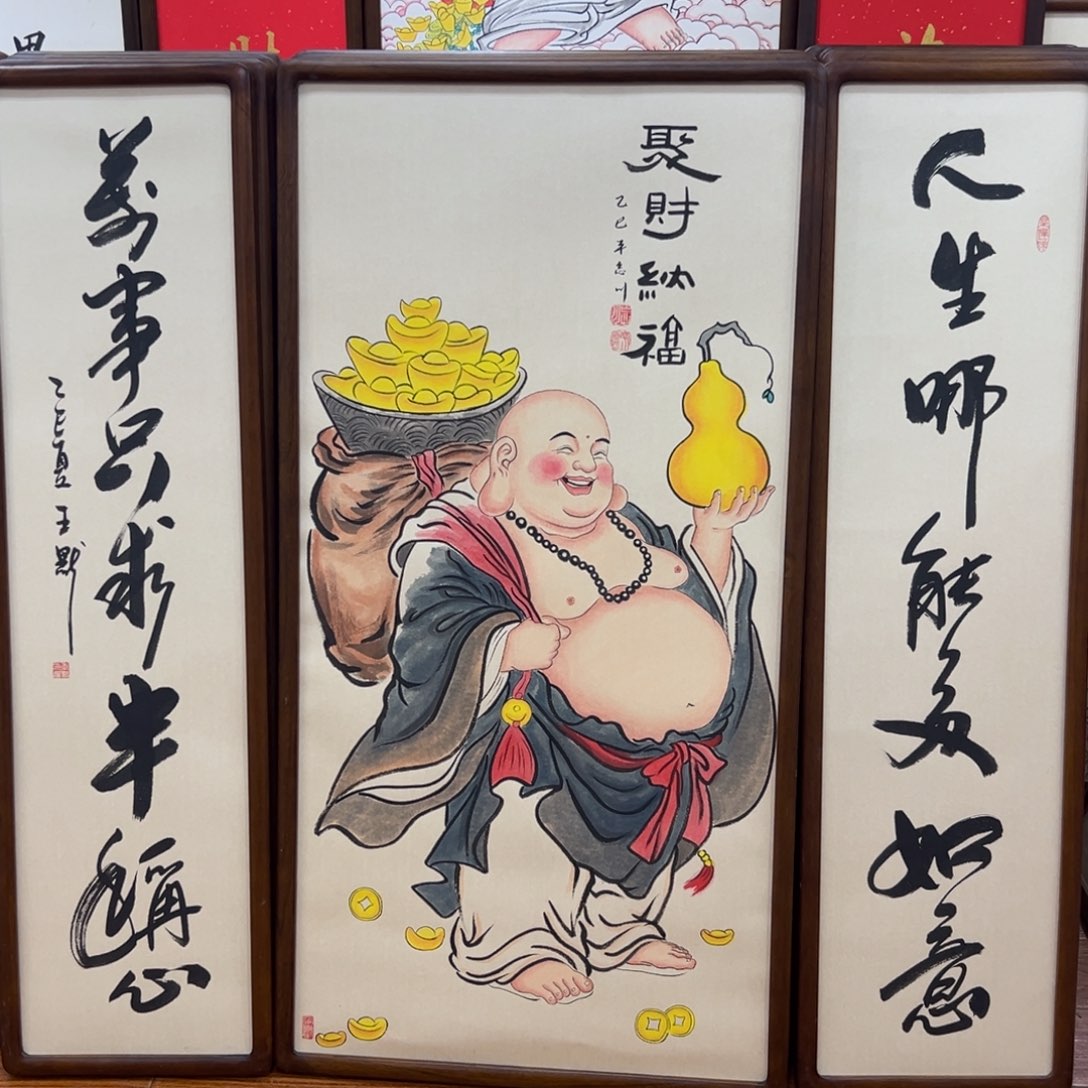 人生哪能多如意
聚財納福
乙巳年川
萬事只求半稱心
乙巳夏王默